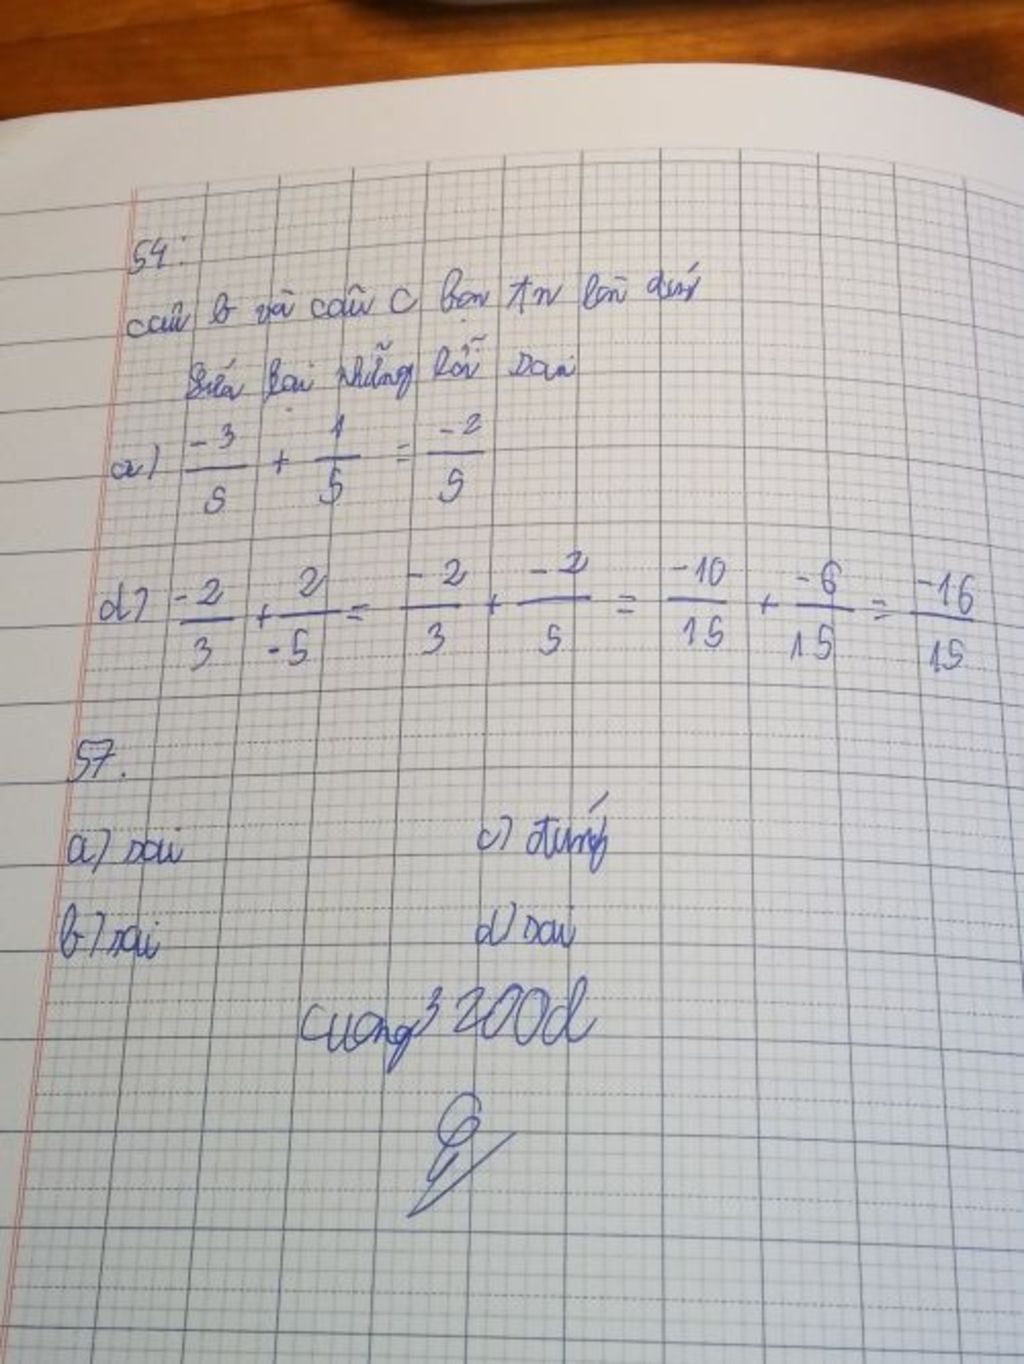 54:
câu b và câu c bạn An làm đúng
Sửa lại những lỗi sai
a) -3/5 + 1/5 = -2/5
d) -2/3 + 2/-5 = -2/3 + -2/5 = -10/15 + -6/15 = -16/15
57.
a) sai c) đúng
b) sai d) sai
cuong3200d